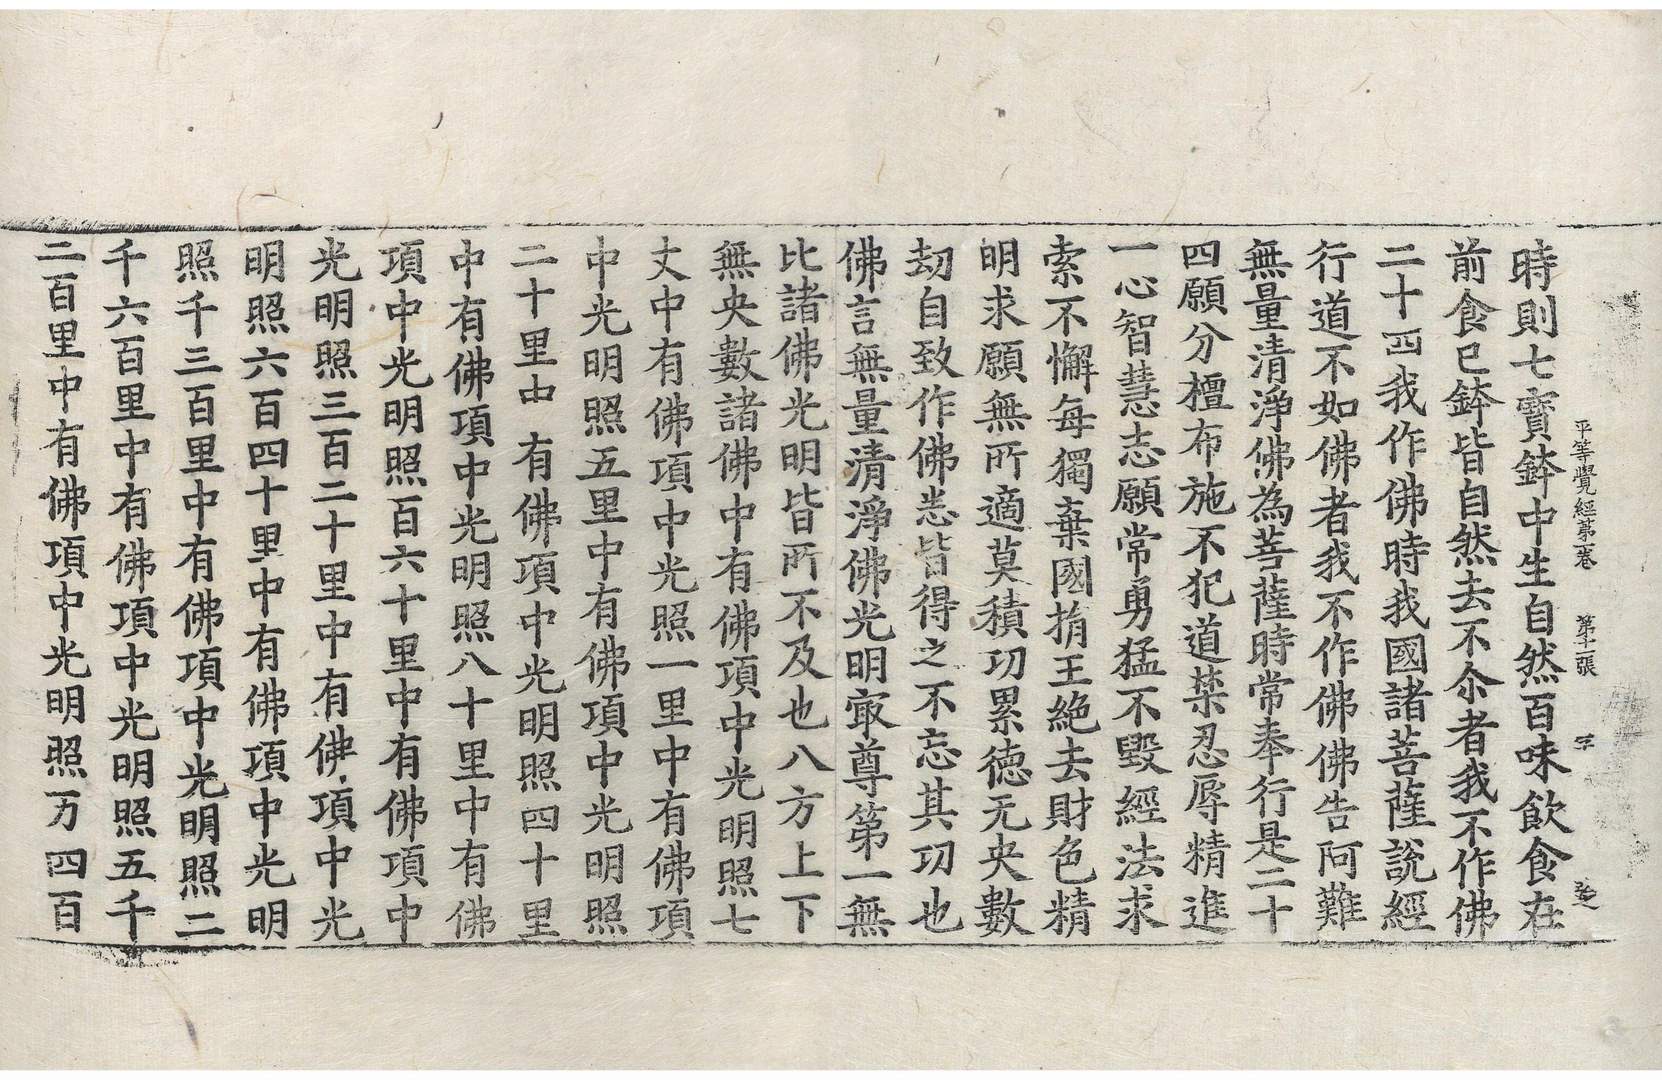 平等覺經第一卷 第十一張 字 㢤
時則七寶鉢中生自然百味飮食在
前食已鉢皆自然去不尒者我不作佛
二十四我作佛時我國諸菩薩說經
行道不如佛者我不作佛佛告阿難
無量清淨佛為菩薩時常奉行是二十
四願分檀布施不犯道禁忍辱精進
一心智慧志願常勇猛不毀經法求
索不懈每獨棄國捐王絶去財色精
明求願無所適莫積功累德无央數
劫自致作佛悉皆得之不忘其功也
佛言無量清淨佛光明㝡尊第一無
比諸佛光明皆所不及也八方上下
無央數諸佛中有佛項中光明照七
丈中有佛項中光照一里中有佛項
中光明照五里中有佛項中光明照
二十里中有佛項中光明照四十里
中有佛項中光明照八十里中有佛
項中光明照百六十里中有佛項中
光明照三百二十里中有佛項中光
明照六百四十里中有佛項中光明
照千三百里中有佛項中光明照二
千六百里中有佛項中光明照五千
二百里中有佛項中光明照万四百